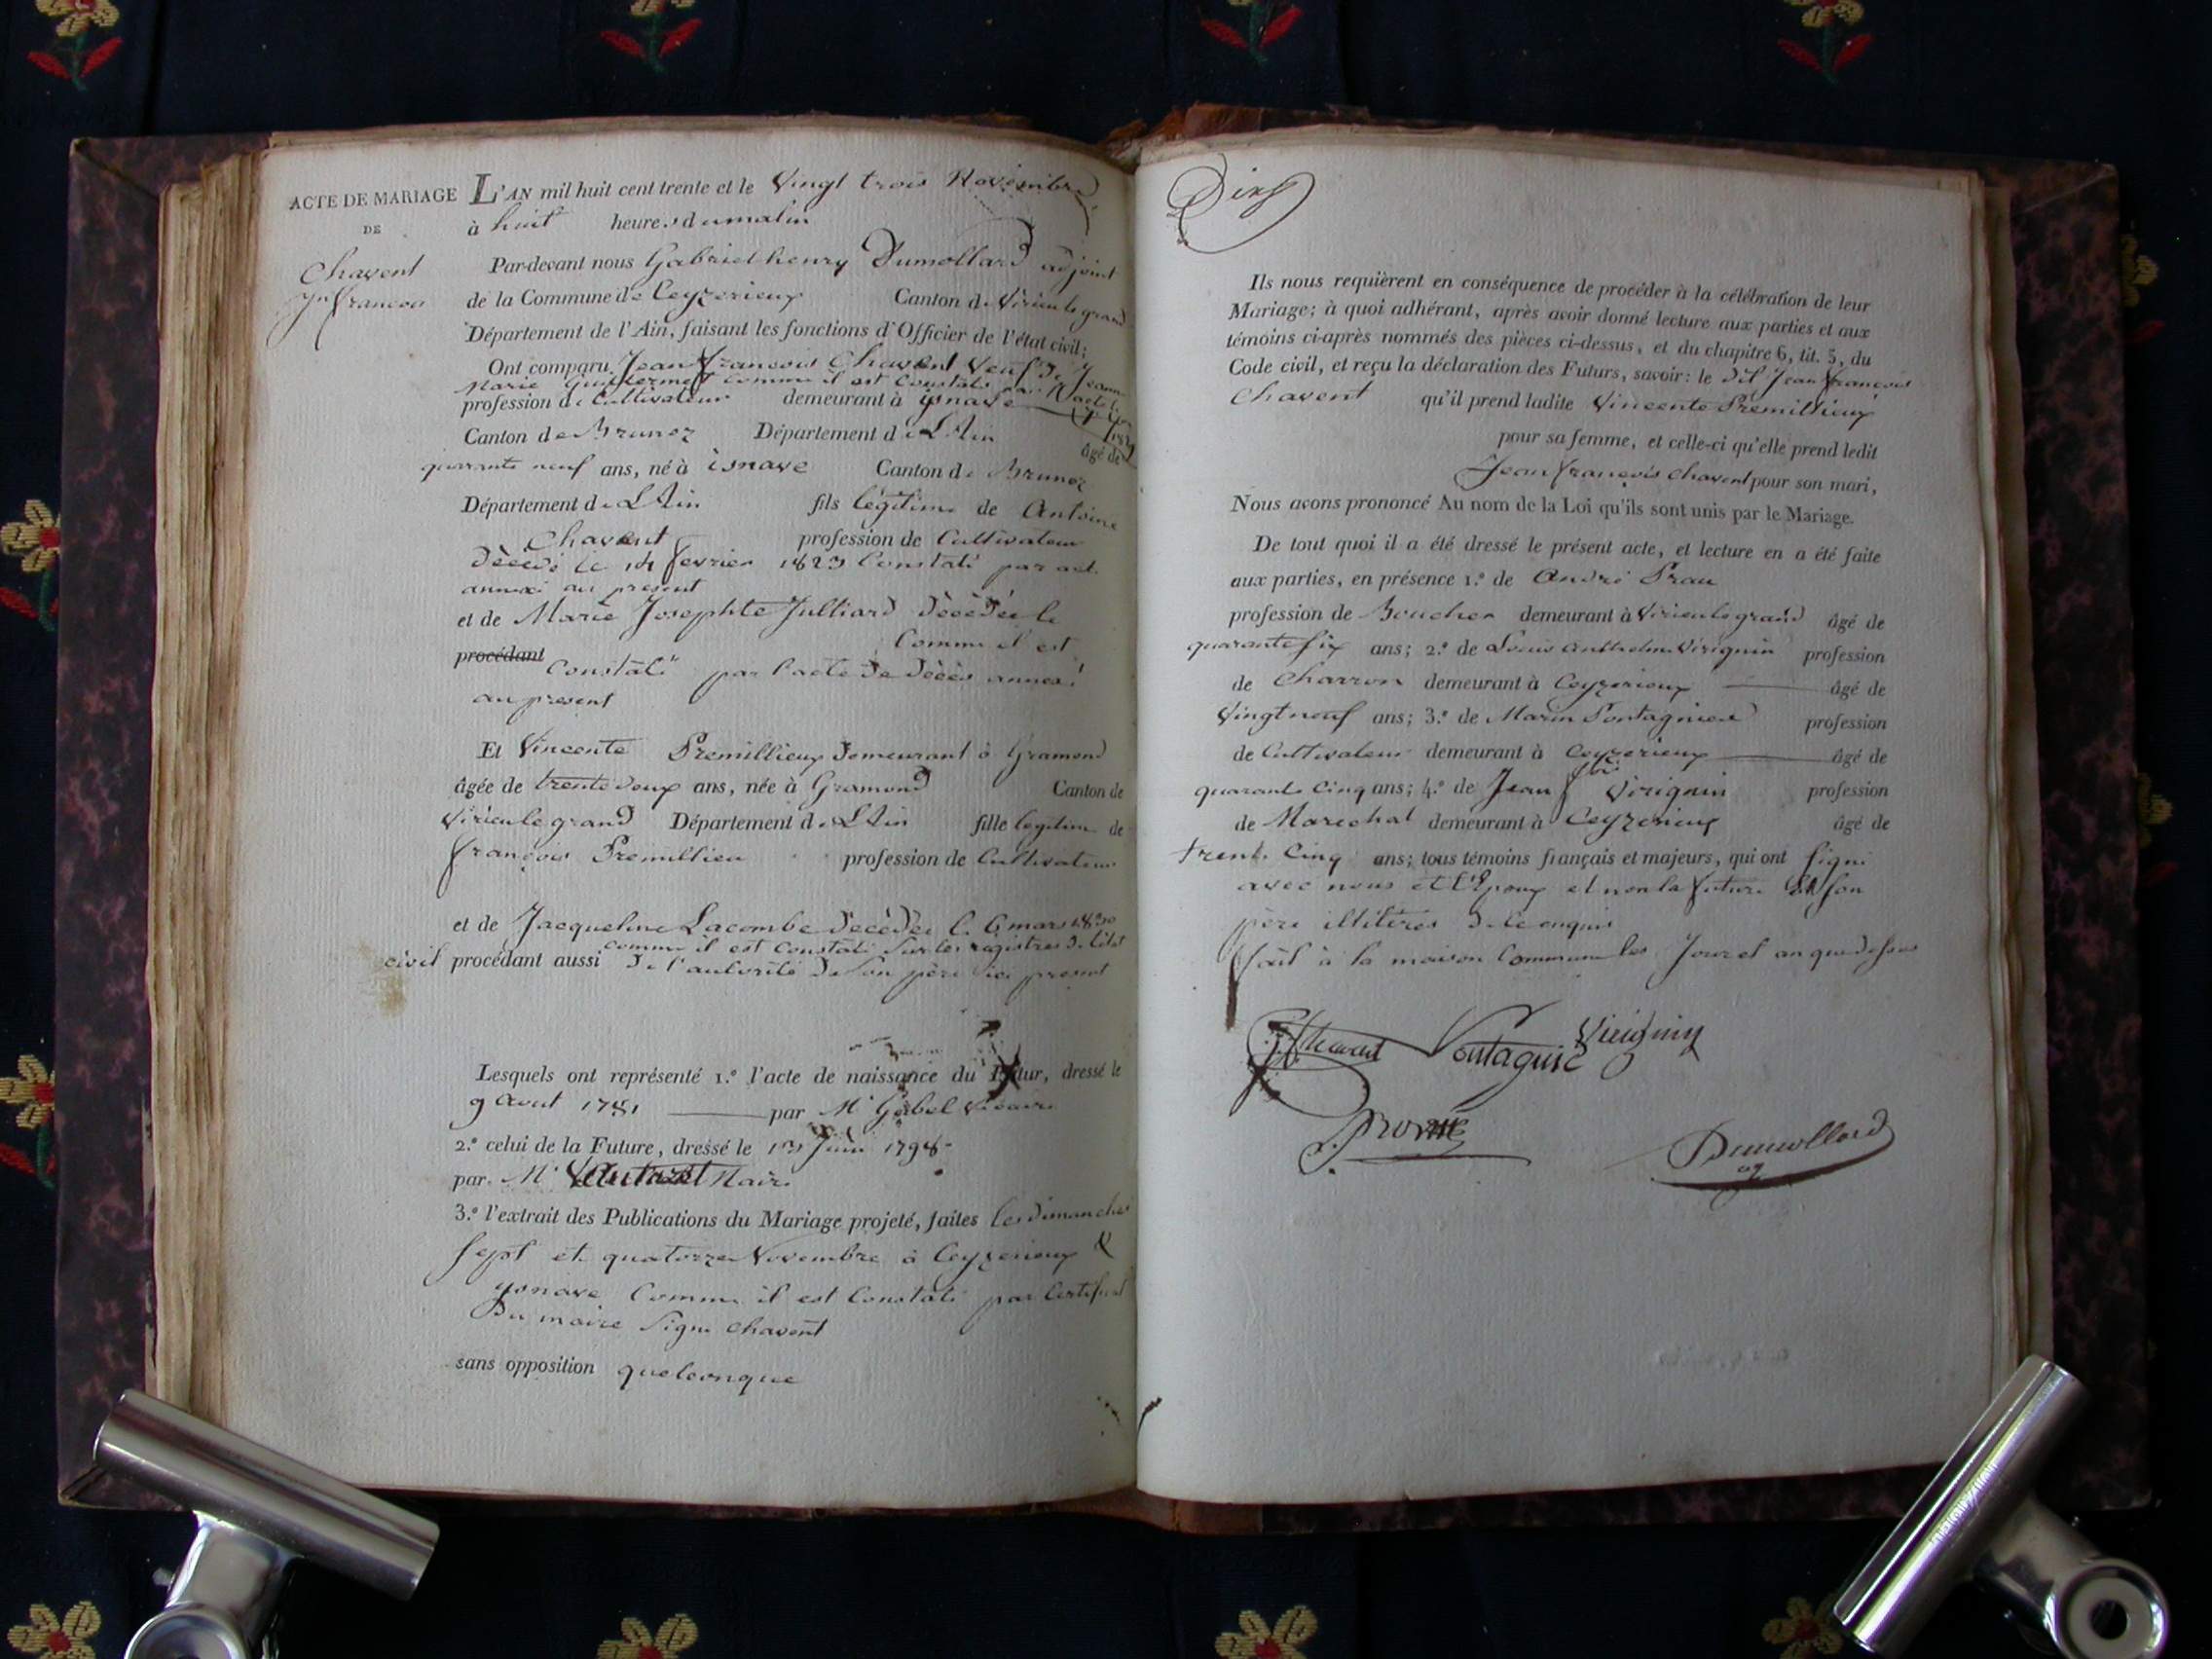 ACTE DE MARIAGE
DE
Chavent
Jn francois
L'AN mil huit cent trente et le Vingt trois Novembre
à huit heures du matin
Par-devant nous Gabriel henry Dumollard adjoint
de la Commune de Ceyzerieux Canton de Virieu le grand
Département de l'Ain, faisant les fonctions d'Officier de l'état civil;
Ont comparu Jean francois Chavent Veuf de Jeanne
Marie Guillermet comme il est Constaté par
profession de Cultivateur demeurant à ysnave
Canton de Brunoz Département de L'Ain âgé de
quarante neuf ans, né à isnave Canton de Brunoz
Département de L'Ain fils légitime de Antoine
Chavent profession de Cultivateur
décédé le 14 fevrier 1823 Constaté par act.
annexé au present
et de Marie Josephte Julliard décédée le
procédant Comme il est
Constaté par l'acte de décès annexé
au present
Et Vincente Premillieux demeurant à Gramond
âgée de trente deux ans, née à Gramond Canton de
Virieu le grand Département de L'Ain fille legitime de
françois Premillieu profession de Cultivateur
et de Jacqueline Lacombe décédée le 6 mars 1830
comme il est Constaté sur les registres de l'état
civil procédant aussi de l'autorité de son père ici present
Lesquels ont représenté 1.º l'acte de naissance du Futur, dressé le
9 Aout 1781 par Mr Gobel Vicaire
2.º celui de la Future, dressé le 13 Juin 1798
par Mr Maire
3.º l'extrait des Publications du Mariage projeté, faites les dimanches
sept et quatorze Novembre à Ceyzerieux &
ysnave Comme il est Constaté par Certificat
Du maire signé Chavent
sans opposition quelconque
Dix
Ils nous requièrent en conséquence de procéder à la célébration de leur
Mariage; à quoi adhérant, après avoir donné lecture aux parties et aux
témoins ci-après nommés des pièces ci-dessus, et du chapitre 6, tit. 5, du
Code civil, et reçu la déclaration des Futurs, savoir: le dit Jean françois
Chavent qu'il prend ladite Vincente Premillieux
pour sa femme, et celle-ci qu'elle prend ledit
Jean françois Chavent pour son mari,
Nous avons prononcé Au nom de la Loi qu'ils sont unis par le Mariage.
De tout quoi il a été dressé le présent acte, et lecture en a été faite
aux parties, en présence 1.º de André Prau
profession de Boucher demeurant à Virieu le grand âgé de
quarante six ans; 2.º de Louis Anthelme Virignin profession
de Charron demeurant à Ceyzerieux âgé de
Vingt neuf ans; 3.º de Marin Pontagnier profession
de Cultivateur demeurant à Ceyzerieux âgé de
quarante Cinq ans; 4.º de Jean fois Virignin profession
de Marechal demeurant à Ceyzerieux âgé de
trente Cinq ans; tous témoins français et majeurs, qui ont signé
avec nous et l'Epoux et non la future son
père illitérés de ce enquis
fait à la maison Commune les Jour et an que dessus
Chavent Pontagnié Virignin
Dumollard